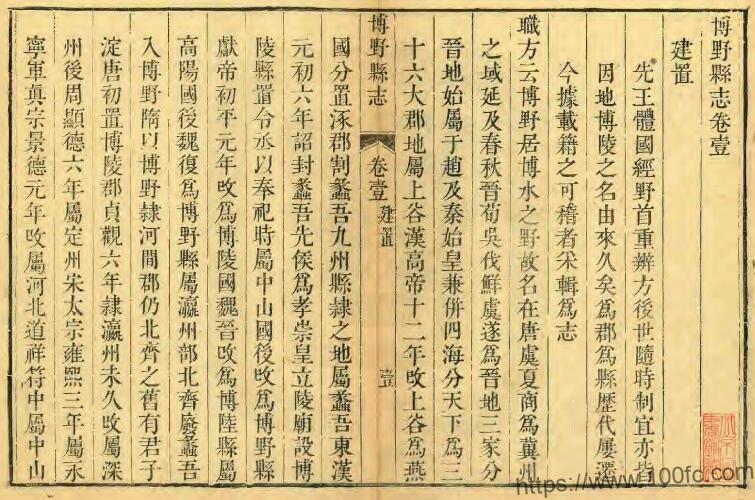 博野縣志卷壹
建置
先王體國經野首重辨方後世隨時制宜亦皆
因地博陵之名由來久矣為郡為縣歷代屢遷
今據載籍之可稽者采輯為志
職方云博野居博水之野故名在唐虞夏商為冀州
之域延及春秋晉荀吳伐鮮虞遂為晉地三家分
晉地始屬于趙及秦始皇兼併四海分天下為三
十六大郡地屬上谷漢高帝十二年改上谷為燕
博野縣志
卷壹
建置
壹
國分置涿郡割蠡吾九州縣隸之地屬蠡吾東漢
元初六年詔封蠡吾先侯為孝崇皇立陵廟設博
陵縣置令丞以奉祀時屬中山國後改為博野縣
獻帝初平元年改為博陵國魏晉改為博陸縣屬
高陽國後魏復為博野縣屬瀛州部北齊廢蠡吾
入博野隋以博野隸河間郡仍北齊之舊有君子
淀唐初置博陵郡貞觀六年隸瀛州未久改屬深
州後周顯德六年屬定州宋太宗雍熙三年屬永
寧軍真宗景德元年改屬河北道祥符中屬中山
https://www.100fc.com